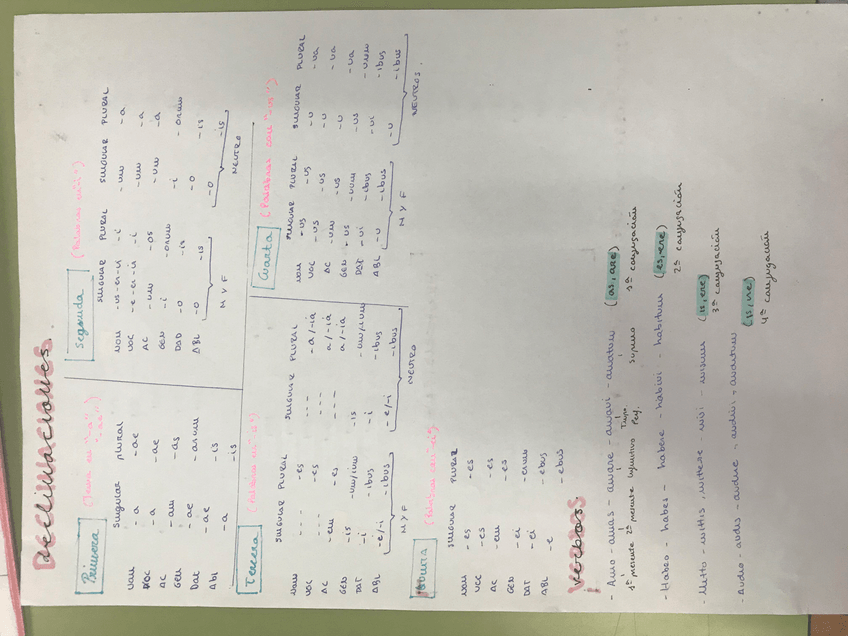 DECLINACIONES
declinaciones
Primera
Singular plural
NOM - a - ae
VOC - a - ae
AC - am - as
GEN - ae - arum
Dat - ae - is
ABL - a - is
Segunda
SINGULAR PLURAL SINGULAR PLURAL
NOM - us - er - ir - i - um - a
VOC - e - er - ir - i - um - a
AC - um - os - um - a
GEN - i - orum - i - orum
DAT - o - is - o - is
ABL - o - is - o - is
M Y F NEUTRO
Tercera
SINGULAR PLURAL SINGULAR PLURAL
NOM - - - - es - - - - a / - ia
VOC - - - - es - - - a / - ia
AC - em - es - - - a / - ia
GEN - is - um/ium - is - um/ium
DAT - i - ibus - i - ibus
ABL - e/-i - ibus - e/-i - ibus
M Y F NEUTRO
Cuarta
SINGULAR PLURAL SINGULAR PLURAL
NOM - us - us - u - ua
VOC - us - us - u - ua
AC - um - us - u - ua
GEN - us - uum - us - uum
DAT - ui - ibus - ui - ibus
ABL - u - ibus - u - ibus
M Y F NEUTROS.
Quinta
SINGULAR PLURAL
NOM - es - es
VOC - es - es
AC - em - es
GEN - ei - erum
DAT - ei - ebus
ABL - e - ebus
VERBOS
verbos.
- Amo - amas - amare - amavi - amatum (as, are)
1ª presente 2ª presente Infinitivo Perf. Supino 1ª conjugación
- Habeo - habes - habere - habivi - habitum (es, ere)
2ª conjugación
- Mitto - mittis, mittere - (is, ere)
3ª conjugación
- Audio - audis - audire, audivi, auditum (is, ire)
4ª conjugación